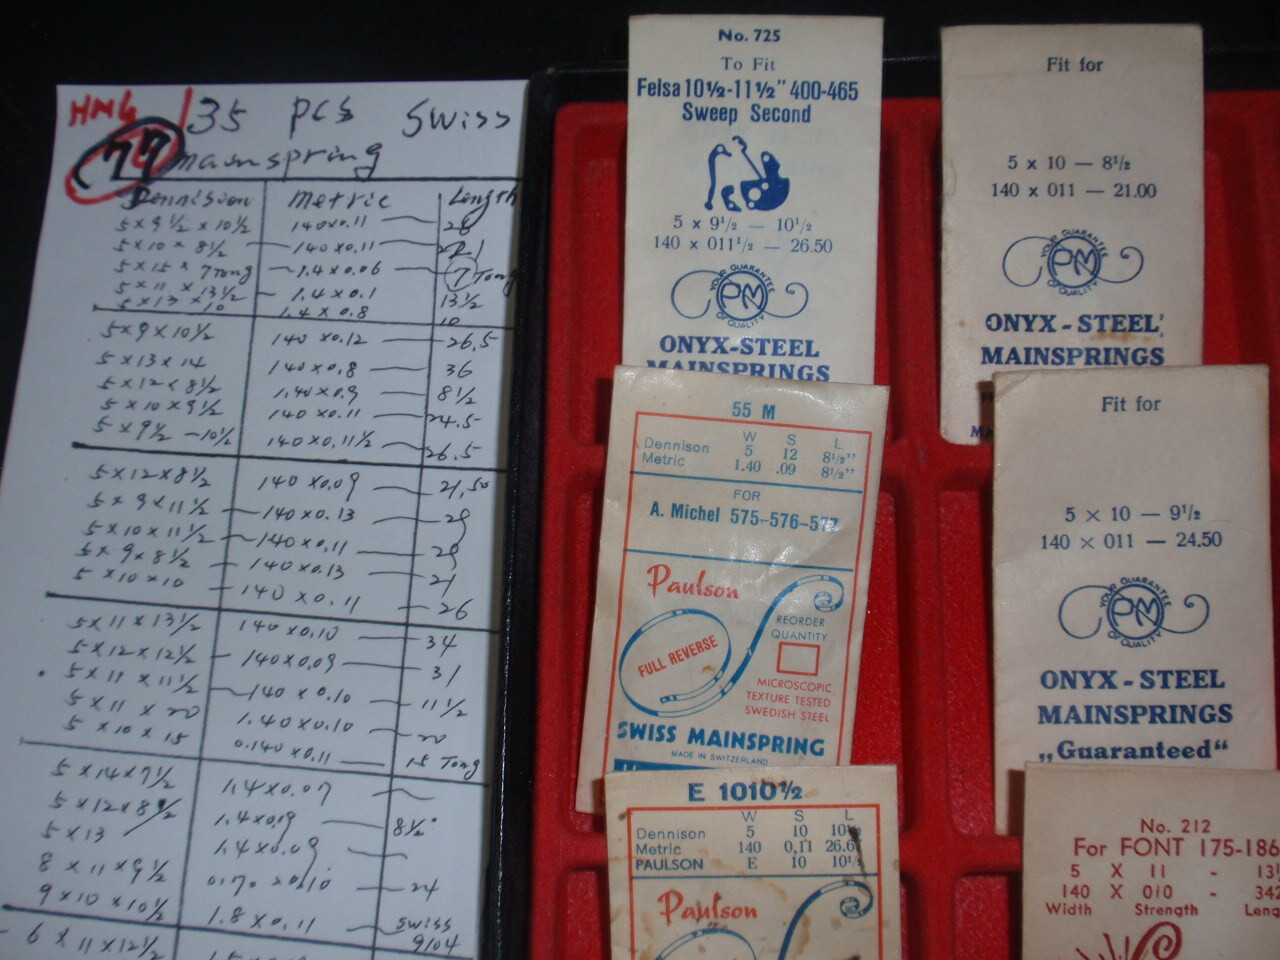 HMG 135 PCS Swiss
77 mainspring
Dennision Metric Length
5 x 9 1/2 x 10 1/2 140x0.11 — 26
5 x 10 x 8 1/2 — 140 x0.11
5 x 15 x 7 Tong — 1.4 x 0.06 — 7 Tong
5 x 11 x 13 1/2 — 1.4 x 0.1 13 1/2
5 x 13 x 10 1.4 x 0.8 10
5 x 9 x 10 1/2 140 x0.12 — 26.5
5 x 13 x 14 140 x0.8 — 36
5 x 12 x 8 1/2 1.40 x0.9 8 1/2
5 x 10 x 9 1/2 140 x0.11 — 24.5
5 x 9 1/2 — 10 1/2 140 x0.11 1/2 — 26.5
5 x 12 x 8 1/2 140 x0.09 — 21,50
5 x 9 x 11 1/2 — 140 x 0.13 — 29
5 x 10 x 11 1/2 — 140 x0.11 — 29
5 x 9 x 8 1/2 — 140 x0.13 — 21
5 x 10 x 10 — 140 x 0.11 — 26
5 x 11 x 13 1/2 140 x 0.10 — 34
5 x 12 x 12 1/2 — 140 x 0.09 — 31
5 x 11 x 11 1/2 — 140 x 0.10 — 11 1/2
5 x 11 x 20 1.40 x 0.10 — 20
5 x 10 x 15 0.140 x0.11 — 15 Tong
5 x 14 x 7 1/2 1.4 x 0.07 —
5 x 12 x 8 1.4 x0.9 — 8 1/2
5 x 13 1.4 x 0.09
8 x 11 x 9 1/2 0.10 — 24
9 x 10 x 10 1/2 1.8 x 0.11 — Swiss
9104
6 x 11 x 12 1/2
No. 725
To Fit
Felsa 10½-11½" 400-465
Sweep Second
5 x 9½ — 10½
140 x 011½ — 26.50
YOUR GUARANTEE
PM
OF QUALITY
ONYX-STEEL
MAINSPRINGS
Fit for
5 x 10 — 8½
140 x 011 — 21.00
YOUR GUARANTEE
PM
OF QUALITY
ONYX-STEEL
MAINSPRINGS
55 M
W S L
Dennison 5 12 8½"
Metric 1.40 .09 8½"
FOR
A. Michel 575-576-577
Paulson
FULL REVERSE
REORDER
QUANTITY
MICROSCOPIC
TEXTURE TESTED
SWEDISH STEEL
SWISS MAINSPRING
MADE IN SWITZERLAND
Fit for
5 x 10 — 9½
140 x 011 — 24.50
YOUR GUARANTEE
PM
OF QUALITY
ONYX-STEEL
MAINSPRINGS
„Guaranteed“
E 1010½
W S L
Dennison 5 10 10½
Metric 140 0,11
PAULSON E 10 10½
Paulson
No. 212
For FONT 175-186
5 X 11 -
140 X 010 -
Width Strength